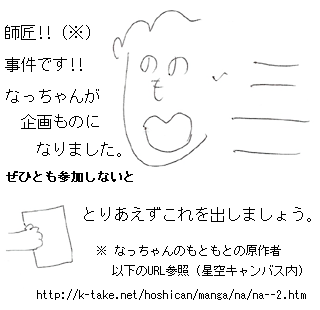 師匠!!（※）
事件です!!
なっちゃんが
企画ものに
なりました。
ぜひとも参加しないと
とりあえずこれを出しましょう。
※ なっちゃんのもともとの原作者
以下のURL参照（星空キャンバス内）
http://k-take.net/hoshican/manga/na/na--2.htm